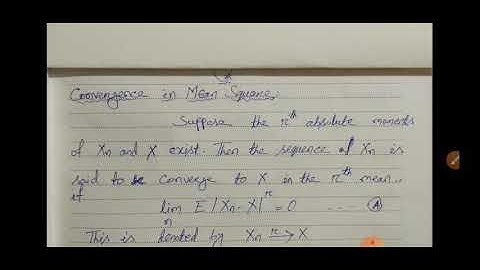 Convergence in Mean Square.
Suppose the rth absolute moments
of Xn and X exist. Then the sequence of Xn is
said to be converge to X in the rth mean..
if
lim n E |Xn - X|^r = 0 ---- (A)
This is denoted by Xn r→ X